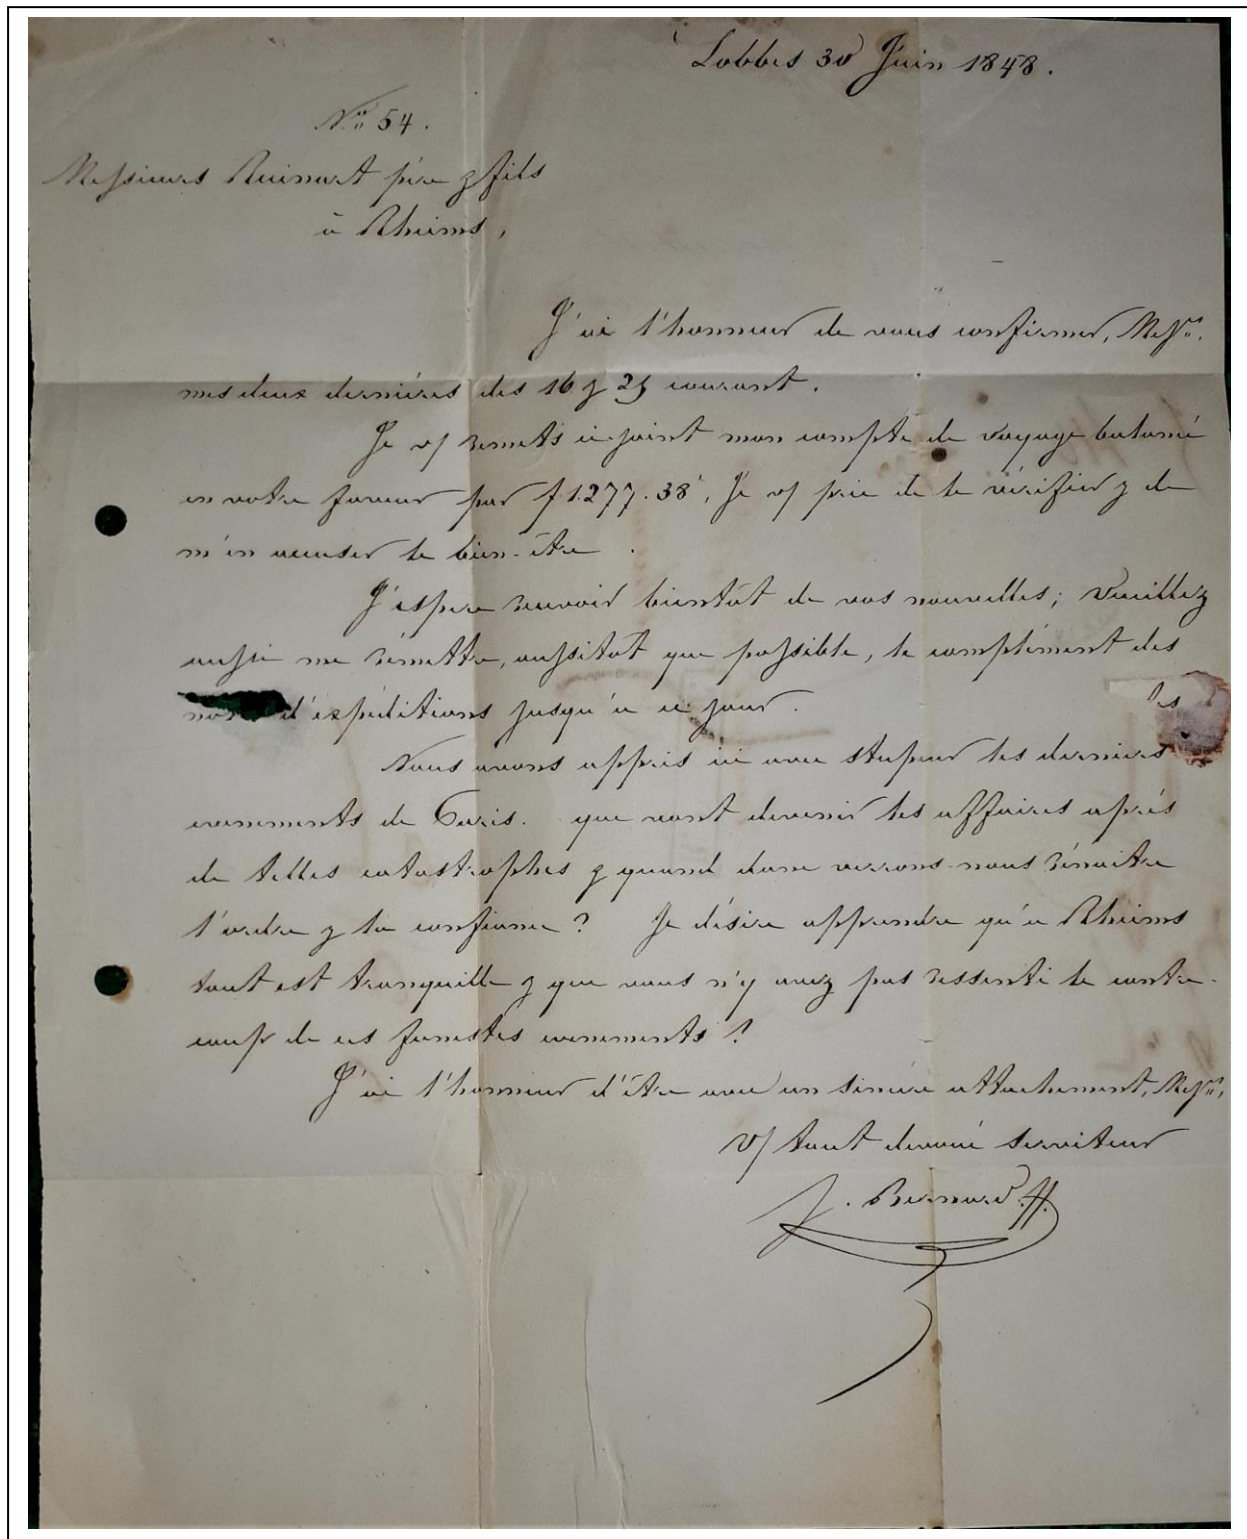 Lobbes 30 Juin 1848.
N.º 54.
Messieurs Ruinart père & fils
à Rheims,
J'ai l'honneur de vous confirmer, Mess.rs
mes deux dernières des 16 & 25 courant.
Je v/ remets ci-joint mon compte de voyage balancé
en votre faveur par f 1.277.38c, Je v/ prie de le vérifier & de
m'en accuser le bien-être.
J'espère recevoir bientôt de vos nouvelles; veuillez
aussi me remettre, aussitôt que possible, le complément des
d'expéditions jusqu'à ce jour.
les
Nous avons appris ici avec stupeur les derniers
evenements de Paris. que vont devenir les affaires après
de telles catastrophes & quand donc verrons-nous rénaitre
l'ordre & la confiance? Je désire apprendre qu'à Rheims
tout est tranquille & que vous n'y avez pas ressenti le contre-
coup de ces funestes evenements!
J'ai l'honneur d'être avec un sincère attachement, Mess.rs,
V/ tout dévoué serviteur
J. Bernard ff.